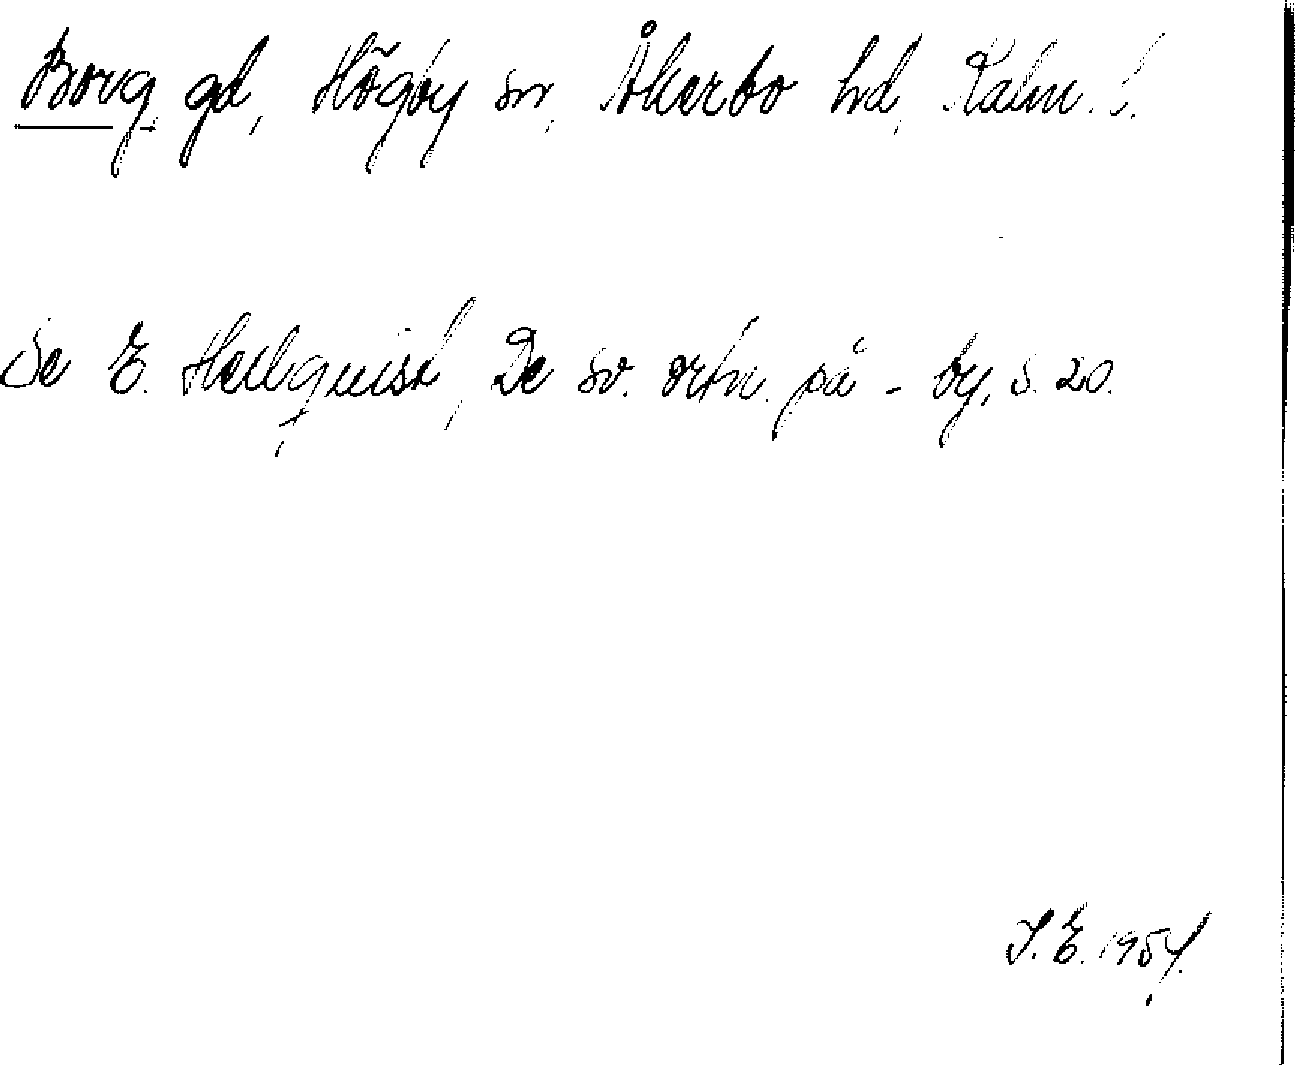 Borg gd, Högby sn, Åkerbo hd, Kalm. l.
Se E. Hellquist, De sv. ortn. på - by, s. 20.
I. E. 1954.